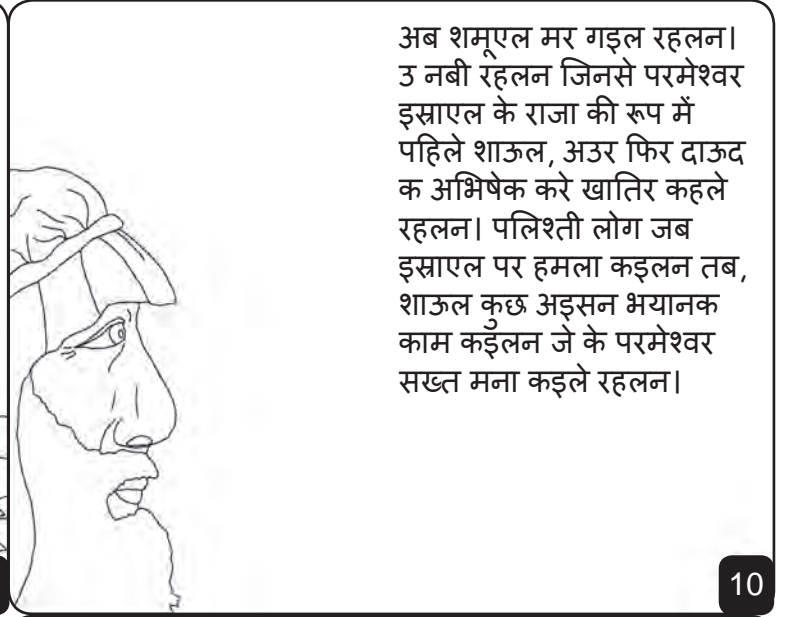 अब शमूएल मर गइल रहलन।
उ नबी रहलन जिनसे परमेश्वर
इस्राएल के राजा की रूप में
पहिले शाऊल, अउर फिर दाऊद
क अभिषेक करे खातिर कहले
रहलन। पलिश्ती लोग जब
इस्राएल पर हमला कइलन तब,
शाऊल कुछ अइसन भयानक
काम कइलन जे के परमेश्वर
सख्त मना कइले रहलन।
10